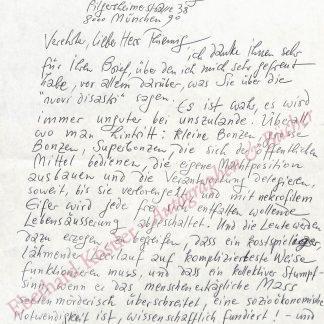 Pilgersheimerstrasse 38
8000 München 90
Verehrter, lieber Herr
ich danke Ihnen sehr
für Ihren Brief, über den ich mich sehr gefreut
habe, vor allem darüber, was Sie über die
"nuovi disastri" sagen. Es ist wahr, es wird
immer unguter bei unszulande. Überall
wo man hintritt: kleine Bonzen, grosse
Bonzen, Superbonzen die sich der öffentlichen
Mittel bedienen, die eigene Machtposition
ausbauen und die Verantwortung delegieren,
soweit, bis sie verlorengeht und mit nekrofilem
Eifer wird jede frei sich entfalten wollende
Lebensäusserung abgeschaltet. Und die Leute werden
dazu erzogen zu begreifen, dass ein kostspieliger
lähmender Leerlauf auf komplizierteste Weise
funktionieren muss, und dass ein kollektiver Stumpf-
sinn, wenn er das menschenerträgliche Mass
selbstmörderisch überschreitet, eine sozioökonomische
Notwendigkeit ist, wissenschaftlich fundiert! - und
Eberhard Köstler - Autographen & Bücher